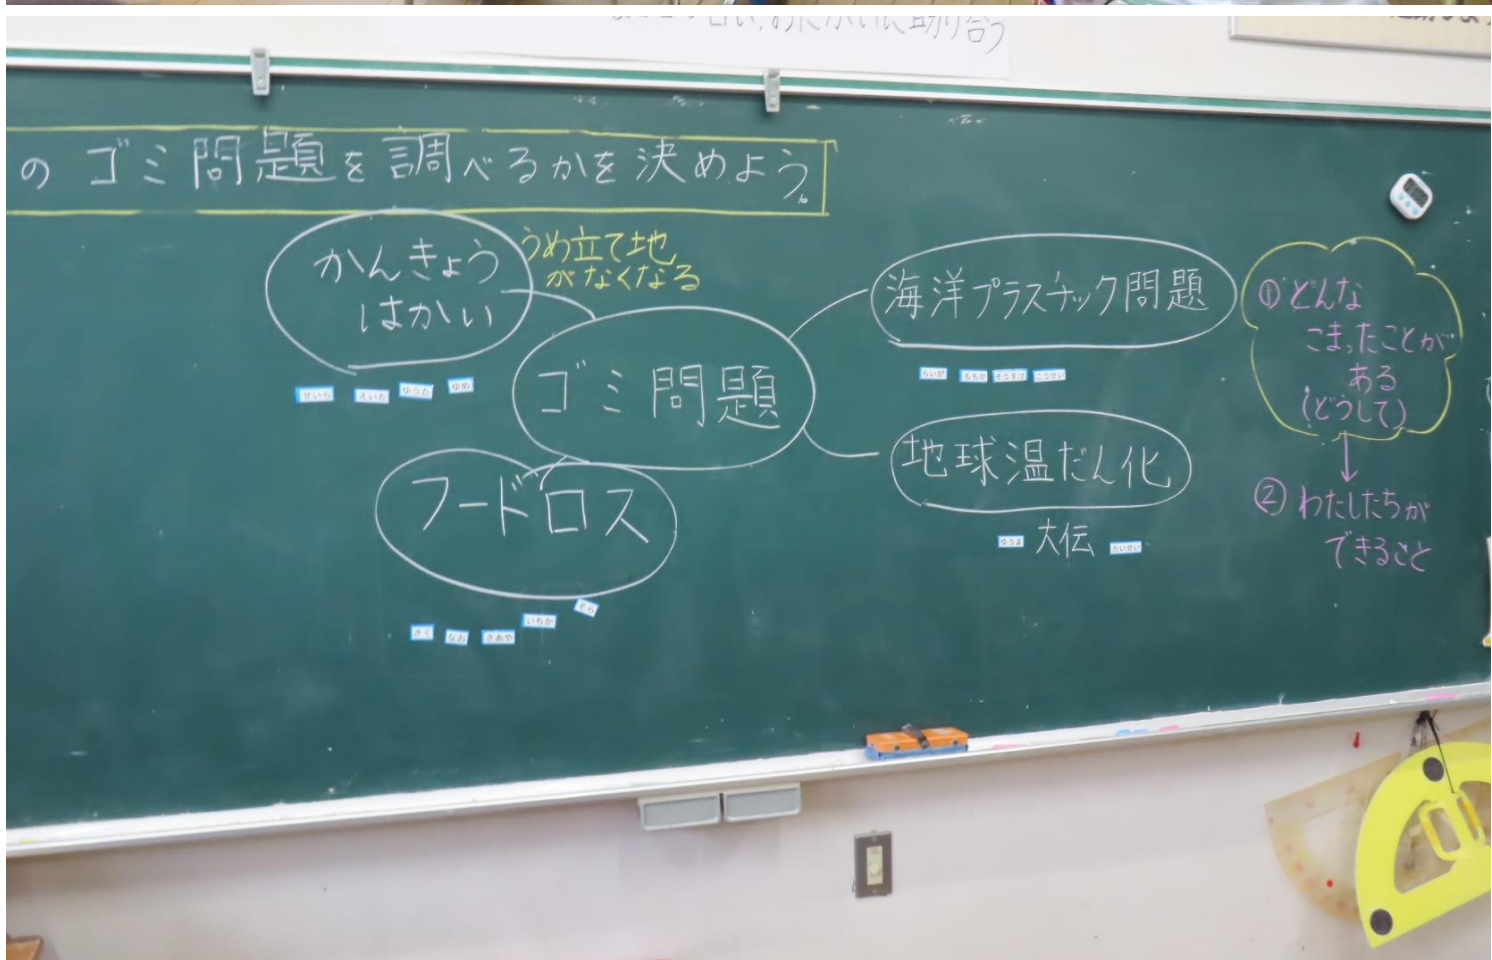 たがいに助け合う
のゴミ問題を調べるかを決めよう。
かんきょう
はかい
うめ立て地
がなくなる
せいら えいた ゆうた ゆめ
ゴミ問題
フードロス
さく なお さあや いちか そら
海洋プラスチック問題
らいが ももか そうすけ こうせい
地球温だん化
ゆうま 大伝 たいせい
①どんな
こまったことが
ある
(どうして)
↓
②わたしたちが
できること